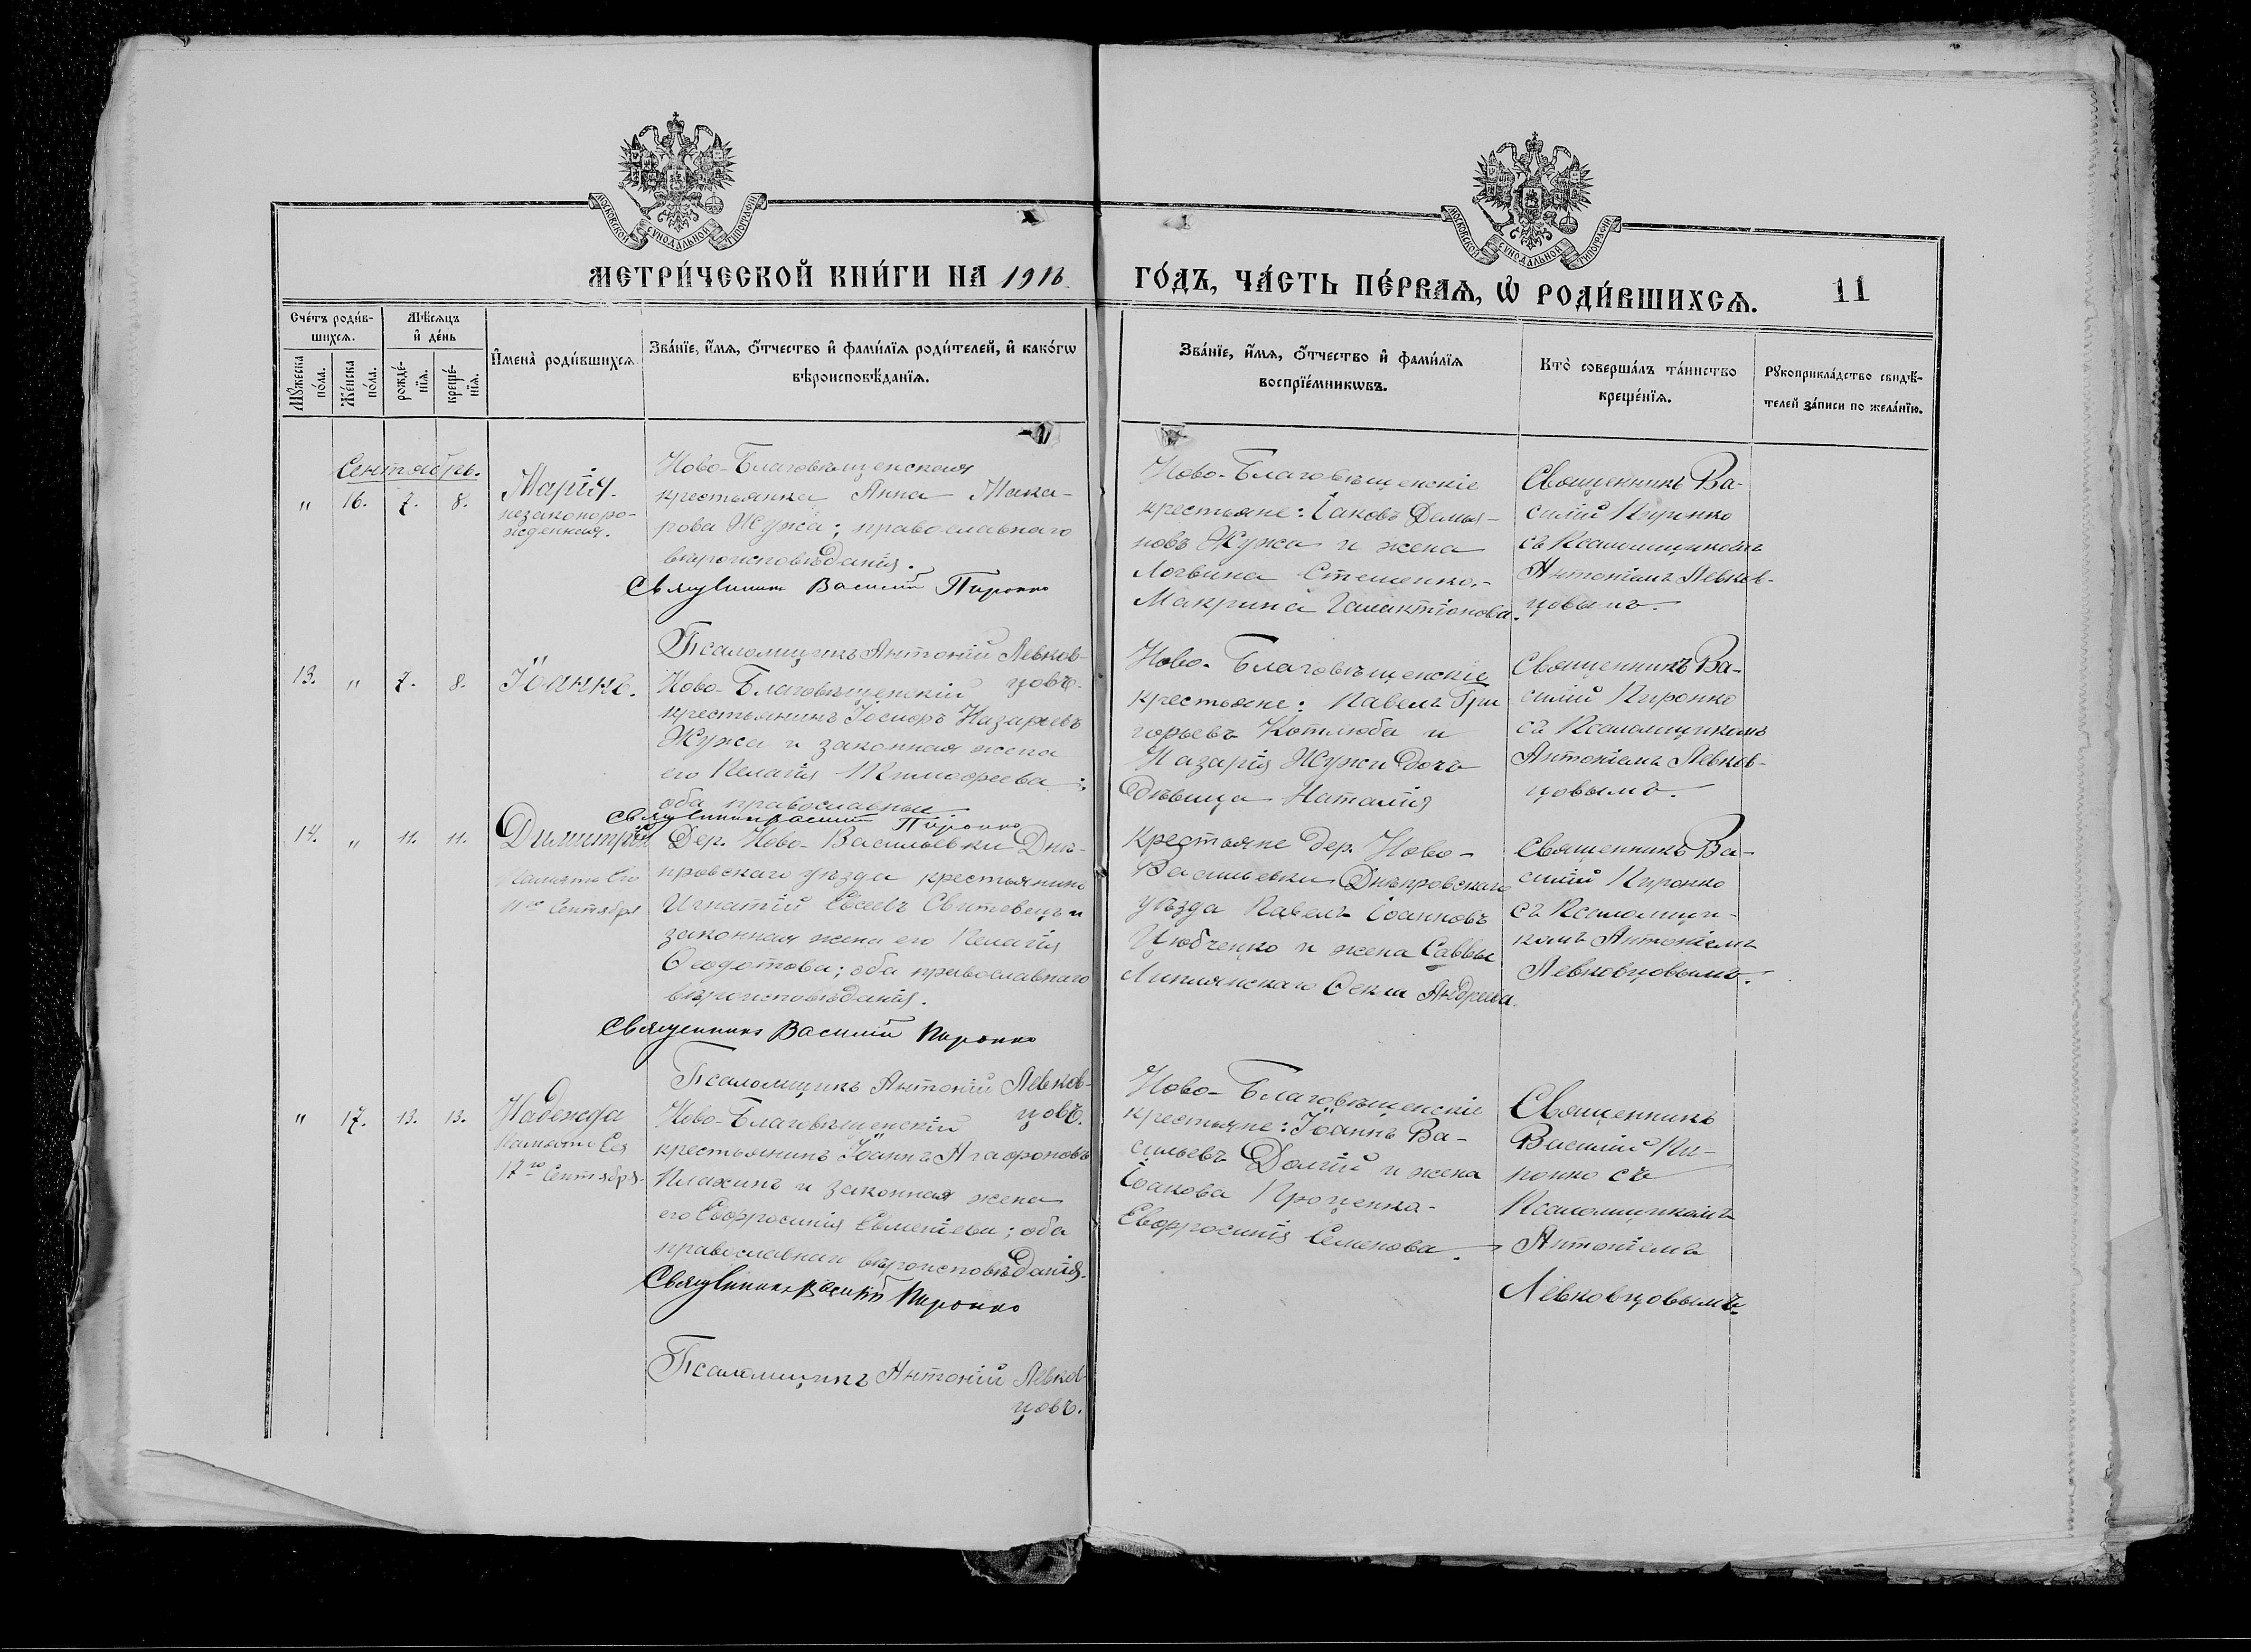 МОСКОВСКОЙ СѴНОДАЛЬНОЙ ТИПОГРАФІИ
МОСКОВСКОЙ СѴНОДАЛЬНОЙ ТИПОГРАФІИ
МЕТРИ́ЧЕСКОЙ КНИ́ГИ НА 1916.
ГО́ДЪ, ЧА́СТЬ ПЕ́РВАѦ, Ѡ РОДИ́ВШИХСѦ.
11
Сче́тъ роди́в-
шихсѧ.
Мꙋжеска по́ла.
Же́нска по́ла.
Мѣ́сѧцъ
и҆ де́нь
рожде́-
нїѧ.
креще́-
нїѧ.
И҆мена̀ роди́вшихсѧ.
Зва́нїе, и҆́мѧ, ѻ҆́тчество и҆ фами́лїѧ роди́телей, и҆ како́гѡ
вѣроисповѣ́данїѧ.
Зва́нїе, и҆́мѧ, ѻ҆́тчество и҆ фами́лїѧ
воспрїе́мникѡвъ.
Кто̀ соверша́лъ та́инство
креще́нїѧ.
Рꙋкоприкла́дство свидѣ́-
телей за́писи по жела́нїю.
Сентябрь.
" 16. 7. 8.
Марія.
незаконоро-
жденная.
Ново-Благовѣщенская
крестьянка Анна Мака-
рова Жужа; православнаго
вѣроисповѣданія.
Священникъ Василій Пиронко
Псаломщикъ Антоній Левков-
цовъ.
Ново-Благовѣщенскіе
крестьяне: Іаковъ Демья-
новъ Жужа и жена
Логвина Стеценко,-
Макрина Галактіонова.
Священникъ Ва-
силій Пиронко
съ Псаломщикомъ
Антоніемъ Левков-
цовымъ.
13. " 7. 8.
Іоаннъ.
Ново-Благовѣщенскій
крестьянинъ Іосифъ Назарьевъ
Жужа и законная жена
его Пелагія Тимофеева;
оба православные.
Священникъ Василій Пиронко
Ново-Благовѣщенскіе
крестьяне: Павелъ Гри
горьевъ Котлюба и
Назарія Жужи дочь
дѣвица Наталія
Священникъ Ва-
силій Пиронко
съ Псаломщикомъ
Антоніемъ Левков-
цовымъ.
14. " 11. 11.
Димитрій
Память Его
11го Сентября
Дер. Ново-Васильевки Днѣ-
провскаго уѣзда крестьянинъ
Игнатій Евсеевъ и
законная жена его Пелагія
Ѳеодотова; оба православнаго
вѣроисповѣданія.
Священникъ Василій Пиронко
Псаломщикъ Антоній Левков-
цовъ.
Крестьяне дер. Ново-
Васильевки Днѣпровскаго
уѣзда Павелъ Іоанновъ
и жена Саввы
Липлянскаго Ѳекла Андреева.
Священникъ Ва-
силій Пиронко
съ Псаломщи-
комъ Антоніемъ
Левковцовымъ.
" 17. 13. 13.
Надежда
Память Ея
17го Сентября.
Ново-Благовѣщенскій
крестьянинъ Іоаннъ Агафоновъ
Плахинъ и законная жена
его Евфросинія Евменіева; оба
православнаго вѣроисповѣданія.
Священникъ Василій Пиронко
Псаломщикъ Антоній Левков
цовъ.
Ново-Благовѣщенскіе
крестьяне: Іоаннъ Ва-
сильевъ Долгій и жена
Іоакова Проценка-
Евфросинія Семенова.
Священникъ
Василій Пи-
ронко съ
Псаломщикомъ
Антоніемъ
Левковцовымъ.